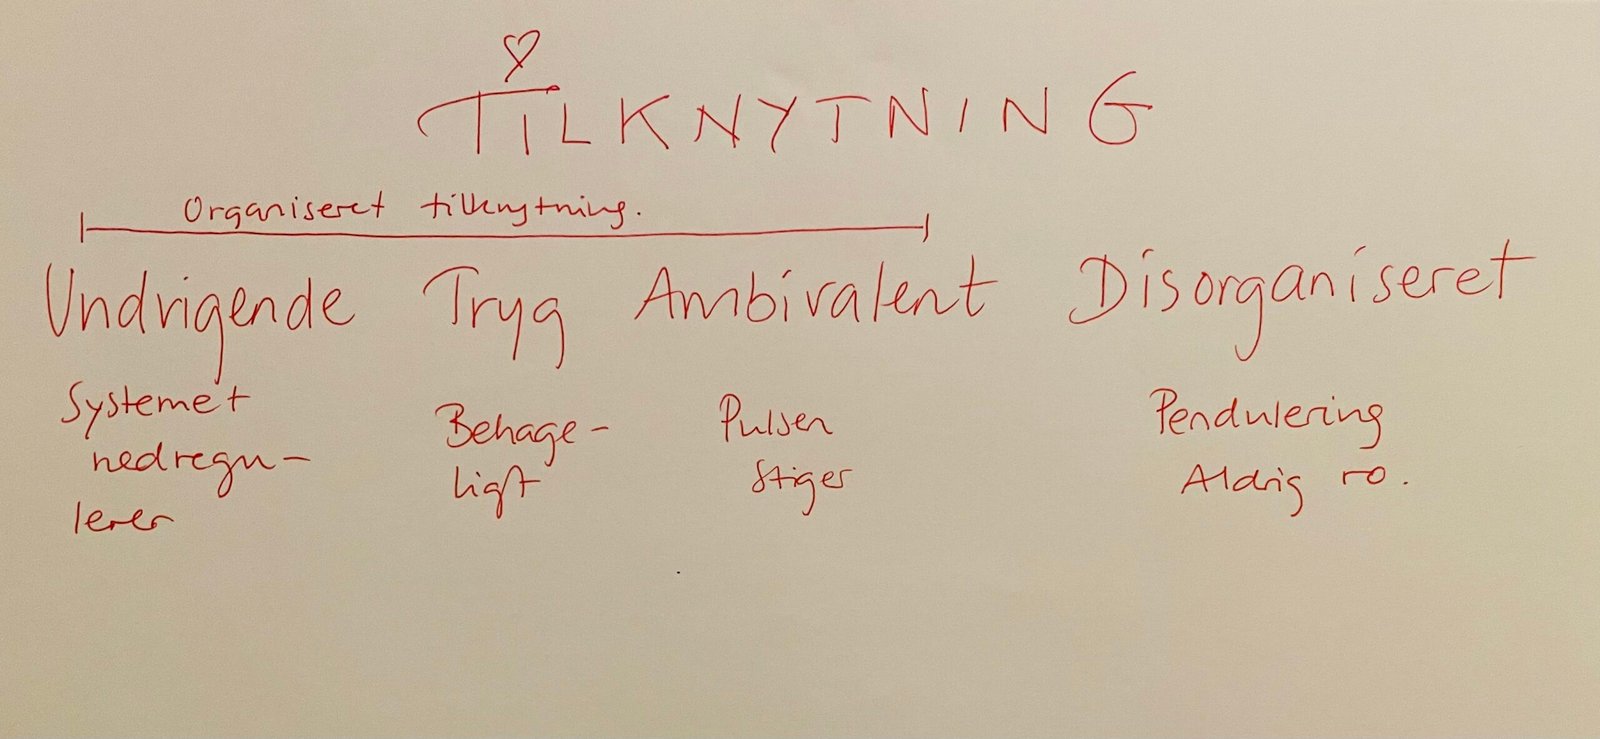 TILKNYTNING
Organiseret tilknytning.
Undrigende Tryg Ambivalent Disorganiseret
Systemet
nedregu-
lerer
Behage-
ligt
Pulsen
stiger
Pendulering
Aldrig ro.